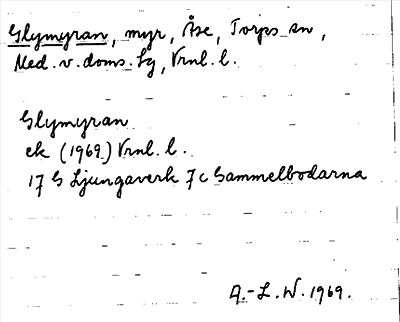 Glymyran, myr, Åse, Torps sn,
Med. v. doms. lg, Vrnl. l.
Glymyran
ek (1969) Vrnl. l.
17 G Ljungaverk 7c Gammelbodarna
A.-L. W. 1969.